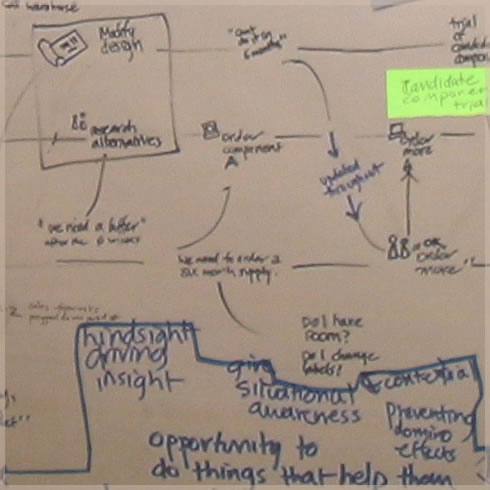 warehouse
Modify
design
"can't
do it in
6 months"
trial
of
candidate
Candidate
component
trial
research
alternatives
order
component
A
order
more
updated
throughout
"we need a buffer"
after the 6 weeks
We need to order a
six month supply.
"OK
order
more"
Do I have
room?
Do I change
labels?
hindsight
driving
insight
situational
awareness
preventing
domino
effects
opportunity to
do things that help them